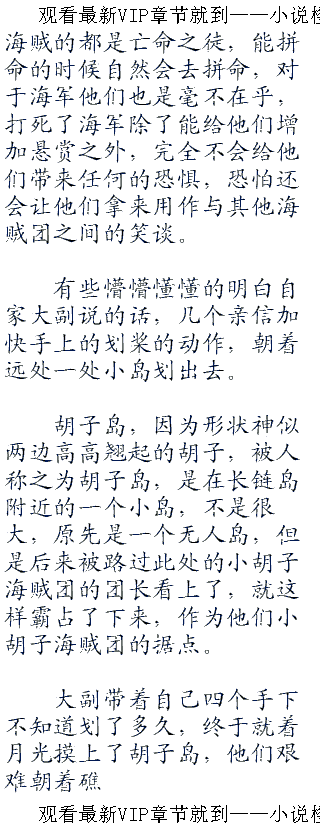 观看最新VIP章节就到——小说
海贼的都是亡命之徒，能拼
命的时候自然会去拼命，对
于海军他们也是毫不在乎，
打死了海军除了能给他们增
加悬赏之外，完全不会给他
们带来任何的恐惧，恐怕还
会让他们拿来用作与其他海
贼团之间的笑谈。
有些懵懵懂懂的明白自
家大副说的话，几个亲信加
快手上的划桨的动作，朝着
远处一处小岛划出去。
胡子岛，因为形状神似
两边高高翘起的胡子，被人
称之为胡子岛，是在长链岛
附近的一个小岛，不是很
大，原先是一个无人岛，但
是后来被路过此处的小胡子
海贼团的团长看上了，就这
样霸占了下来，作为他们小
胡子海贼团的据点。
大副带着自己四个手下
不知道划了多久，终于就着
月光摸上了胡子岛，他们艰
难朝着礁
观看最新VIP章节就到——小说